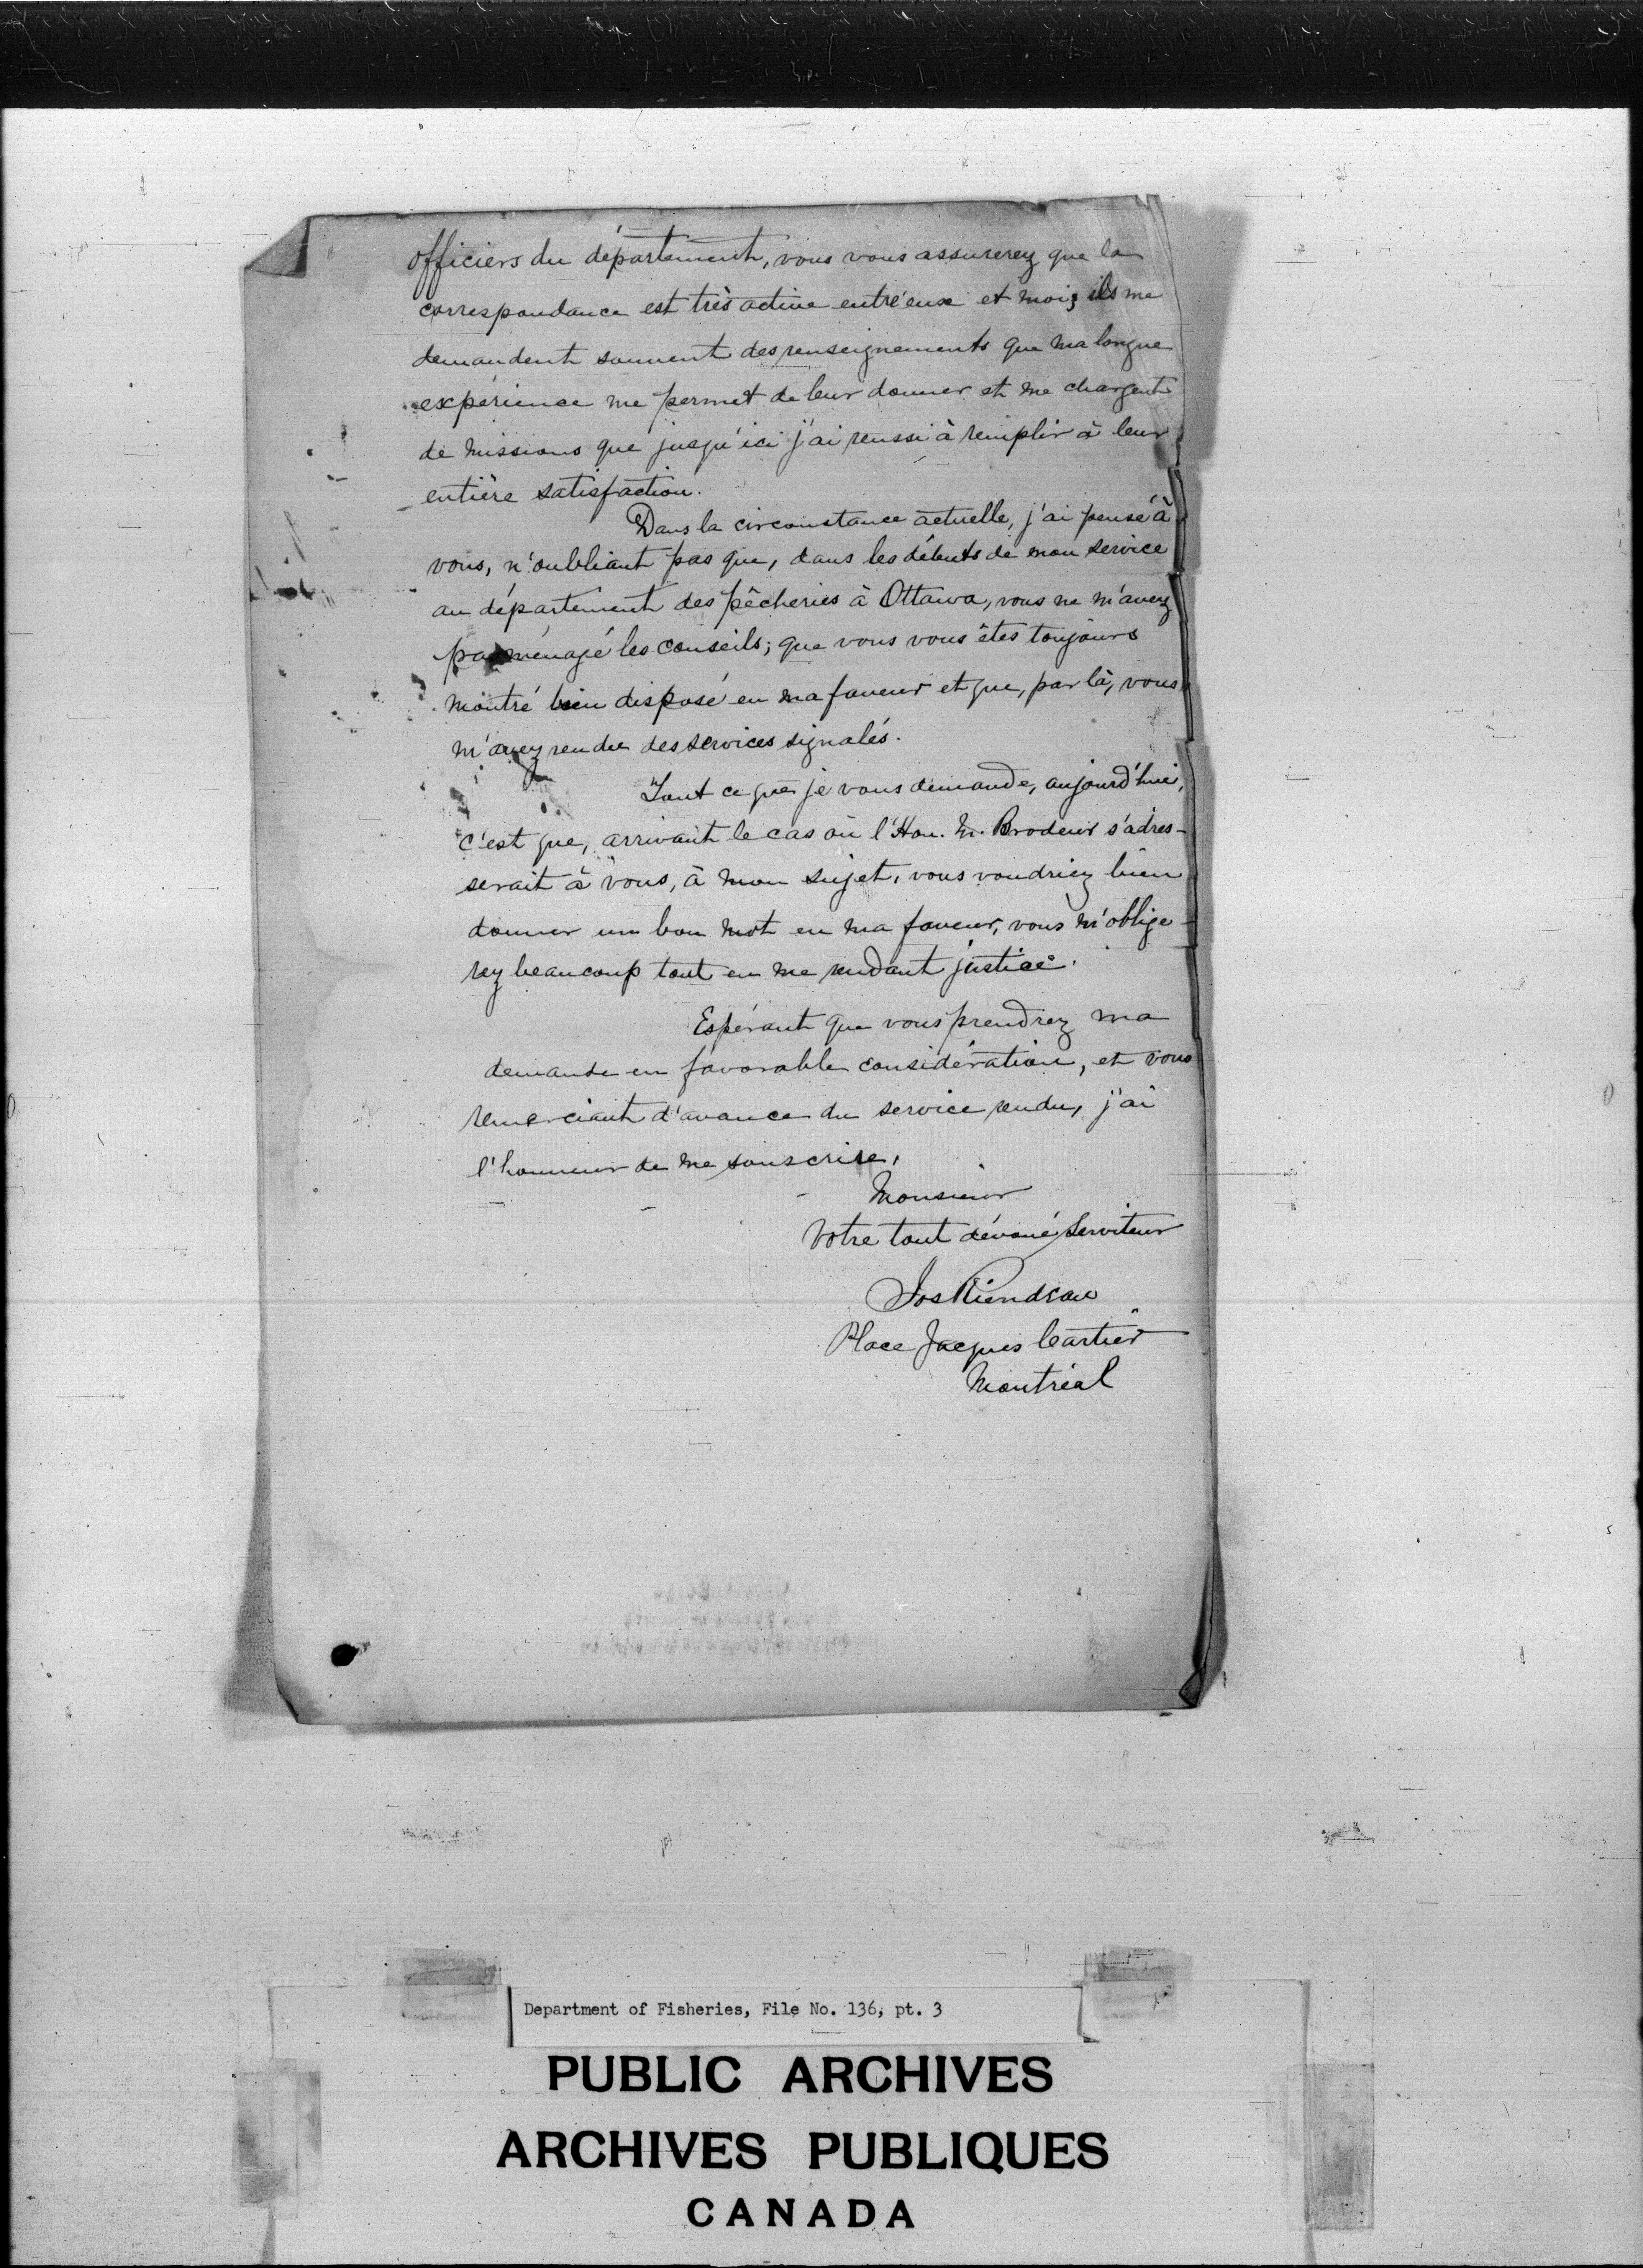 officiers du département, vous vous assurerez que la
correspondance est très active entr'eux et moi; ils me
demandent souvent des renseignements que ma longue
expérience me permet de leur donner et me chargent
de missions que jusqu'ici j'ai reussi à remplir à leur
entière satisfaction.
Dans la circonstance actuelle, j'ai pensé à
vous, n'oubliant pas que, dans les débuts de mon service
au département des pêcheries à Ottawa, vous ne m'avez
pas ménagé les conseils; que vous vous êtes toujours
montré bien disposé en ma faveur et que, par là, vous
m'avez rendu des services signalés.
Tout ce que je vous demande, aujourd'hui,
c'est que, arrivant le cas où l'Hon. M. Brodeur s'adres-
serait à vous, à mon sujet, vous voudriez bien
donner un bon mot en ma faveur, vous m'oblige-
rez beaucoup tout en me rendant justice.
Espérant que vous prendrez ma
demande en favorable considération, et vous
remerciant d'avance du service rendu, j'ai
l'honneur de me souscrire,
Monsieur
Votre tout dévoué Serviteur
Jos Riendeau
Place Jacques Cartier
Montréal
Department of Fisheries, File No. 136, pt. 3
PUBLIC ARCHIVES
ARCHIVES PUBLIQUES
CANADA